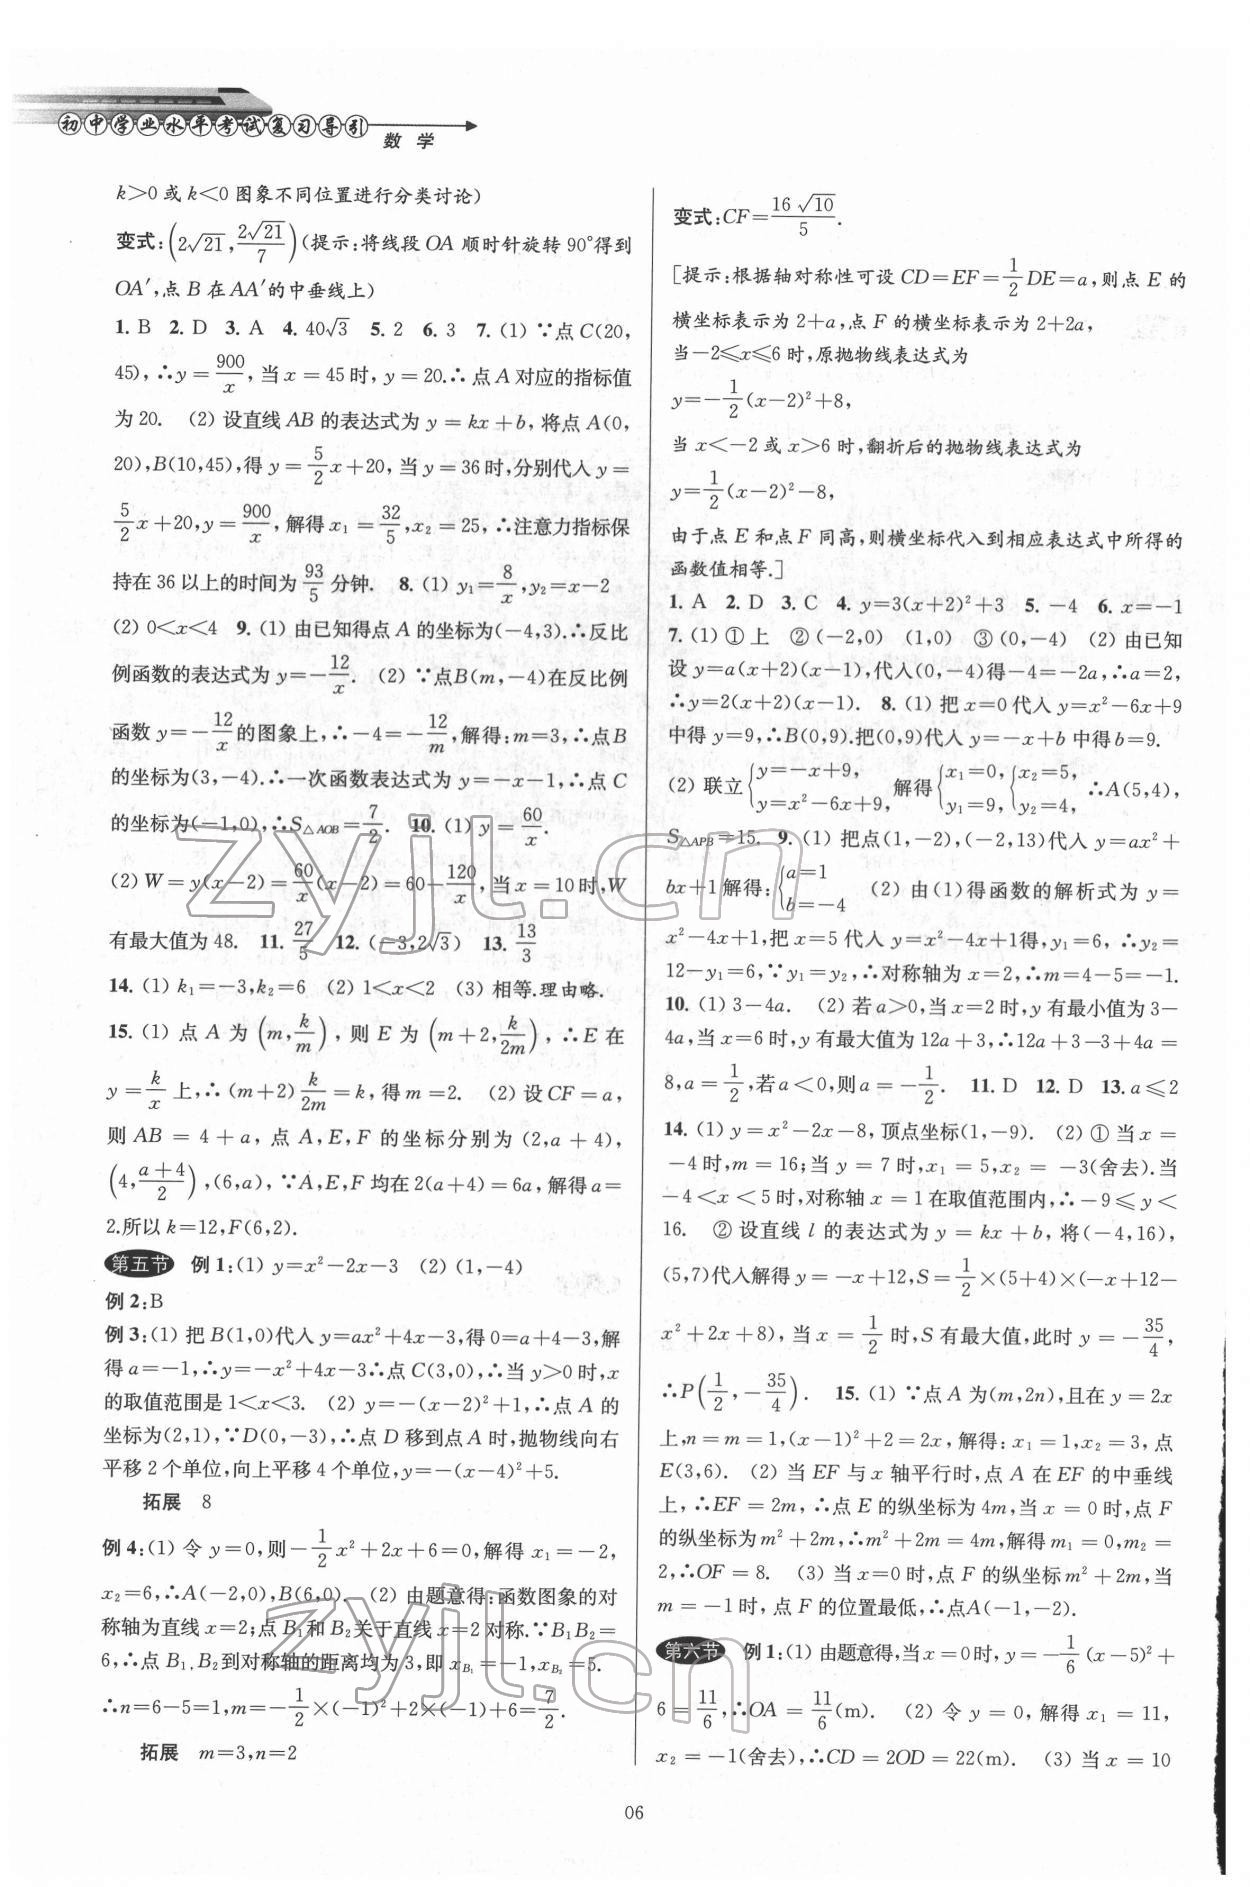 初中学业水平考试复习导引
数 学
k>0 或 k<0 图象不同位置进行分类讨论)
变式:(2√21, 2√21/7)(提示:将线段 OA 顺时针旋转 90°得到
OA′,点 B 在 AA′的中垂线上)
1. B 2. D 3. A 4. 40√3 5. 2 6. 3 7. (1) ∵点 C(20,
45),∴y=900/x,当 x=45 时,y=20.∴点 A 对应的指标值
为 20. (2) 设直线 AB 的表达式为 y=kx+b,将点 A(0,
20),B(10,45),得 y=5/2x+20,当 y=36 时,分别代入 y=
5/2x+20,y=900/x,解得 x₁=32/5,x₂=25,∴注意力指标保
持在 36 以上的时间为 93/5 分钟. 8. (1) y₁=8/x,y₂=x−2
(2) 0<x<4 9. (1) 由已知得点 A 的坐标为(−4,3).∴反比
例函数的表达式为 y=−12/x. (2) ∵点B(m,−4)在反比例
函数 y=−12/x 的图象上,∴−4=−12/m,解得:m=3,∴点B
的坐标为(3,−4).∴一次函数表达式为 y=−x−1,∴点 C
的坐标为(−1,0),∴S△AOB=7/2. 10. (1) y=60/x.
(2) W=y(x−2)=60/x(x−2)=60−120/x,当 x=10 时,W
有最大值为 48. 11. 27/5 12. (−3,2√3) 13. 13/3
14. (1) k₁=−3,k₂=6 (2) 1<x<2 (3) 相等.理由略.
15. (1) 点 A 为 (m,k/m),则 E 为 (m+2,k/2m),∴E 在
y=k/x 上,∴(m+2)k/2m=k,得 m=2. (2) 设 CF=a,
则 AB=4+a,点 A,E,F 的坐标分别为(2,a+4),
(4,(a+4)/2),(6,a),∵A,E,F 均在 2(a+4)=6a,解得 a=
2.所以 k=12,F(6,2).
第五节 例 1:(1) y=x²−2x−3 (2) (1,−4)
例 2:B
例 3:(1) 把 B(1,0)代入 y=ax²+4x−3,得 0=a+4−3,解
得 a=−1,∴y=−x²+4x−3∴点 C(3,0),∴当 y>0 时,x
的取值范围是 1<x<3. (2) y=−(x−2)²+1,∴点 A 的
坐标为(2,1),∵D(0,−3),∴点 D 移到点 A 时,抛物线向右
平移 2 个单位,向上平移 4 个单位,y=−(x−4)²+5.
拓展 8
例 4:(1) 令 y=0,则−1/2x²+2x+6=0,解得 x₁=−2,
x₂=6,∴A(−2,0),B(6,0). (2) 由题意得:函数图象的对
称轴为直线 x=2;点 B₁和 B₂关于直线 x=2 对称.∵B₁B₂=
6,∴点 B₁,B₂到对称轴的距离均为 3,即 xB₁=−1,xB₂=5.
∴n=6−5=1,m=−1/2×(−1)²+2×(−1)+6=7/2.
拓展 m=3,n=2
变式:CF=16√10/5.
[提示:根据轴对称性可设 CD=EF=1/2DE=a,则点 E 的
横坐标表示为 2+a,点 F 的横坐标表示为 2+2a,
当−2≤x≤6 时,原抛物线表达式为
y=−1/2(x−2)²+8,
当 x<−2 或 x>6 时,翻折后的抛物线表达式为
y=1/2(x−2)²−8,
由于点 E 和点 F 同高,则横坐标代入到相应表达式中所得的
函数值相等.]
1. A 2. D 3. C 4. y=3(x+2)²+3 5. −4 6. x=−1
7. (1) ①上 ②(−2,0) (1,0) ③(0,−4) (2) 由已知
设 y=a(x+2)(x−1),代入(0,−4)得−4=−2a,∴a=2,
∴y=2(x+2)(x−1). 8. (1) 把 x=0代入 y=x²−6x+9
中得 y=9,∴B(0,9).把(0,9)代入 y=−x+b 中得 b=9.
(2) 联立{y=−x+9, y=x²−6x+9, 解得{x₁=0, y₁=9, {x₂=5, y₂=4, ∴A(5,4),
S△APB=15. 9. (1) 把点(1,−2),(−2,13)代入 y=ax²+
bx+1解得:{a=1 b=−4 (2) 由(1)得函数的解析式为 y=
x²−4x+1,把 x=5 代入 y=x²−4x+1得,y₁=6,∴y₂=
12−y₁=6,∵y₁=y₂,∴对称轴为 x=2,∴m=4−5=−1.
10. (1) 3−4a. (2) 若 a>0,当 x=2 时,y 有最小值为 3−
4a,当 x=6 时,y 有最大值为 12a+3,∴12a+3−3+4a=
8,a=1/2,若 a<0,则 a=−1/2. 11. D 12. D 13. a≤2
14. (1) y=x²−2x−8,顶点坐标(1,−9). (2) ①当 x=
−4 时,m=16;当 y=7 时,x₁=5,x₂=−3(舍去).当
−4<x<5 时,对称轴 x=1 在取值范围内,∴−9≤y<
16. ②设直线 l 的表达式为 y=kx+b,将(−4,16),
(5,7)代入解得 y=−x+12,S=1/2×(5+4)×(−x+12−
x²+2x+8),当 x=1/2 时,S 有最大值,此时 y=−35/4,
∴P(1/2,−35/4). 15. (1) ∵点 A 为(m,2n),且在 y=2x
上,n=m=1,(x−1)²+2=2x,解得:x₁=1,x₂=3,点
E(3,6). (2) 当 EF 与 x 轴平行时,点 A 在 EF 的中垂线
上,∴EF=2m,∴点 E 的纵坐标为 4m,当 x=0 时,点 F
的纵坐标为 m²+2m,∴m²+2m=4m,解得 m₁=0,m₂=
2,∴OF=8. (3) 当 x=0 时,点 F 的纵坐标 m²+2m,当
m=−1 时,点 F 的位置最低,∴点A(−1,−2).
第六节 例 1:(1) 由题意得,当 x=0 时,y=−1/6(x−5)²+
6=11/6,∴OA=11/6(m). (2) 令 y=0,解得 x₁=11,
x₂=−1(舍去),∴CD=2OD=22(m). (3) 当 x=10
06
zyjl.cn
zyjl.cn